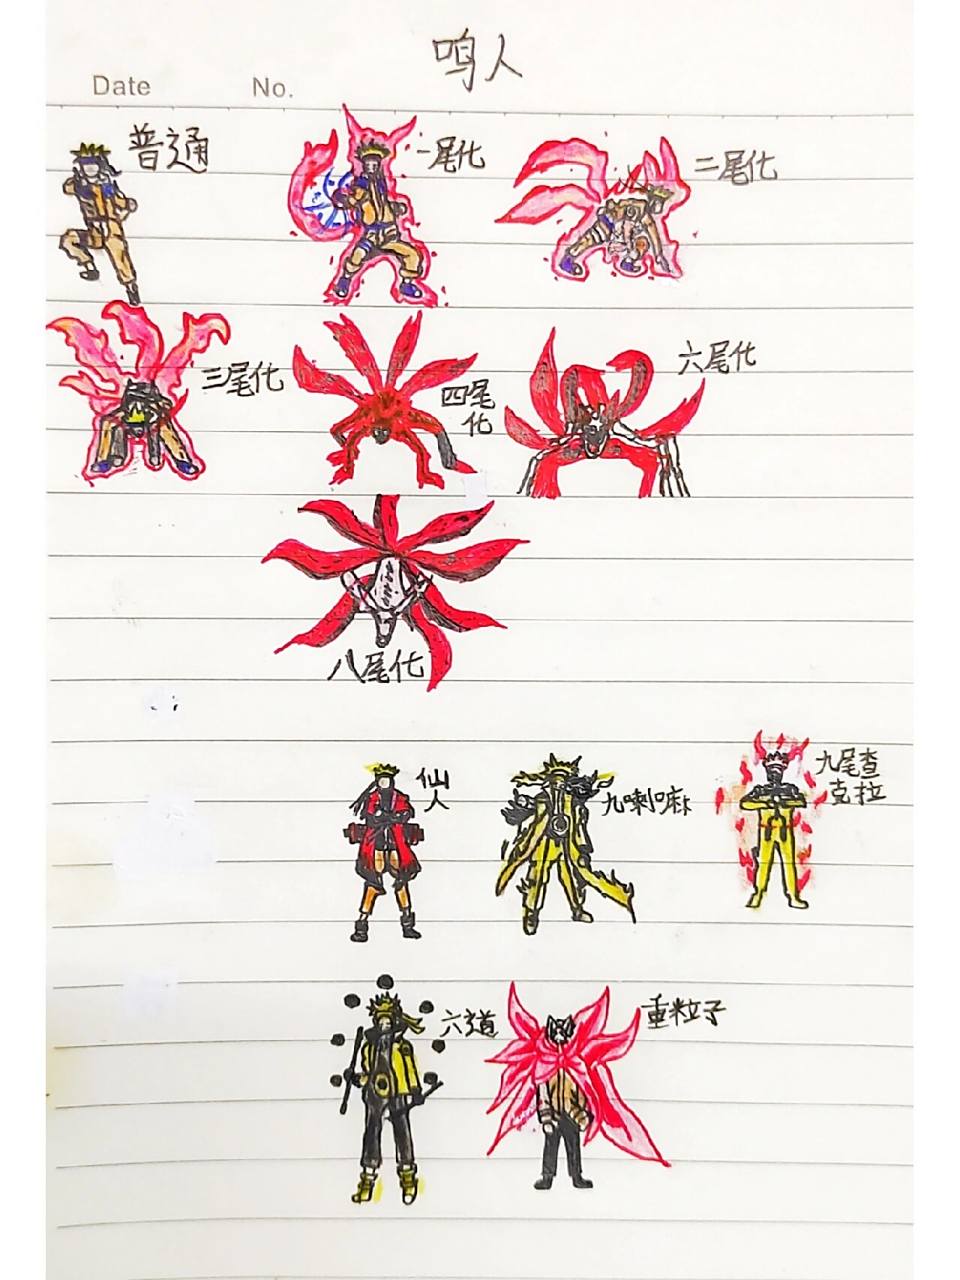 鸣人
Date No.
普通
一尾化
二尾化
三尾化
四尾
化
六尾化
八尾化
仙
人
九喇嘛
九尾查
克拉
六道
重粒子